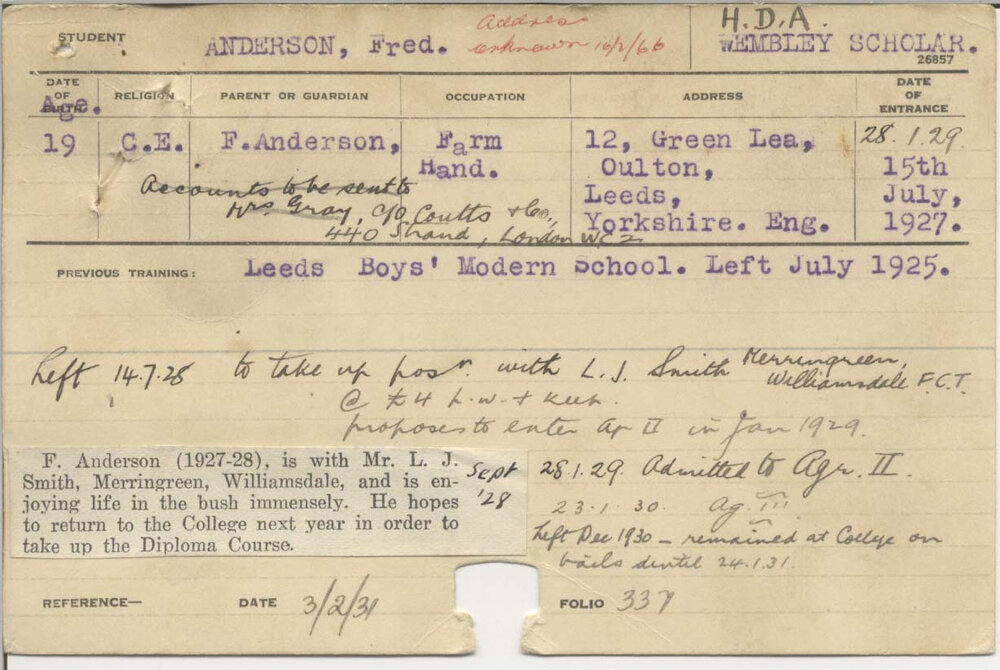 STUDENT ANDERSON, Fred. Address unknown 10/2/66 H.D.A. WEMBLEY SCHOLAR.
26857
DATE OF BIRTH Age. RELIGION PARENT OR GUARDIAN OCCUPATION ADDRESS DATE OF ENTRANCE
19 C.E. F.Anderson, Farm 12, Green Lea, 28.1.29.
Hand. Oulton, 15th
Accounts to be sent to Leeds, July,
Mrs. Gray, c/o Coutts & Co., Yorkshire. Eng. 1927.
440 Strand, London W.C.2
PREVIOUS TRAINING: Leeds Boys' Modern School. Left July 1925.
Left 14.7.28 to take up posn. with L.J. Smith Merringreen,
Williamsdale F.C.T.
@ £4 p.w. & keep.
proposes to enter Ag II in Jan 1929.
F. Anderson (1927-28), is with Mr. L. J.
Smith, Merringreen, Williamsdale, and is en-
joying life in the bush immensely. He hopes
to return to the College next year in order to
take up the Diploma Course.
Sept '28
28.1.29. Admitted to Agr. II.
23.1.30. Ag. III
Left Dec 1930 - remained at College on
bails until 24.1.31.
REFERENCE— DATE 3/2/31 FOLIO 337